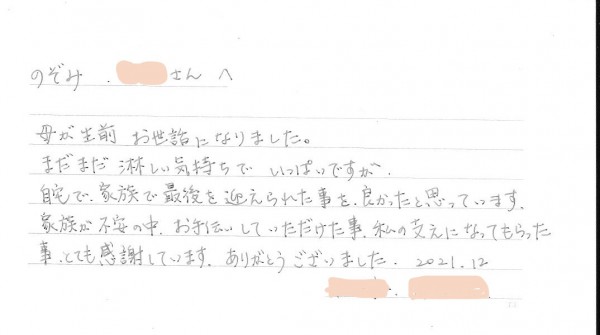 のぞみ . さんへ
母が生前 お世話になりました。
まだまだ 淋しい気持ちで いっぱいですが、
自宅で、家族で最後を迎えられた事を、良かったと思っています。
家族が不安の中、お手伝いしていただけた事、私の支えになってもらった
事、とても感謝しています。ありがとうございました. 2021.12